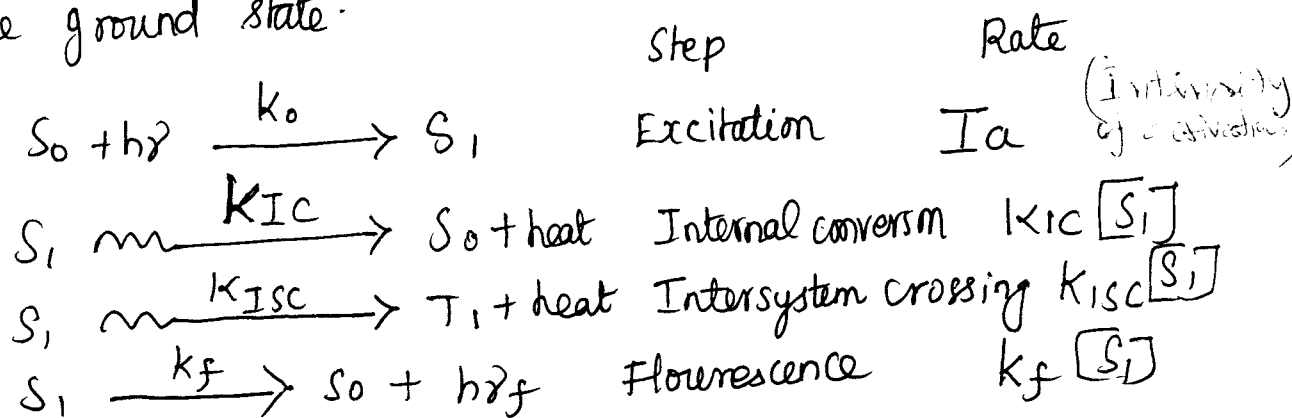 e ground state.
Step Rate
S₀ + hγ —k₀→ S₁ Excitation Ia (Intensity of
S₁ —KIC→ S₀ + heat Internal conversm KIC [S₁]
S₁ —KISC→ T₁ + heat Intersystem crossing KISC [S₁]
S₁ —kf→ S₀ + hγf Flourescence kf [S₁]